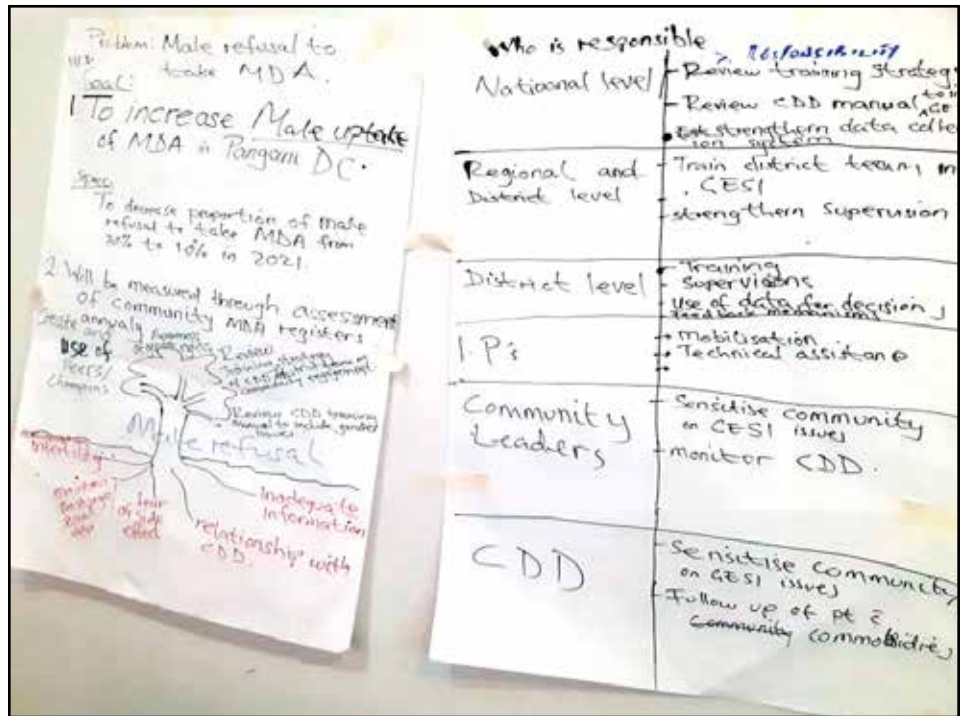 Problem: Male refusal to
take MDA.
Goal:
1 To increase Male uptake
of MDA in Pangani DC.
Spec:
To decrease proportion of male
refusal to take MDA from
30% to 10% in 2021.
2. Will be measured through assessment
of community MDA registers
annualy
Create
and
USE of
Peers/
Champions
Review
Training strategy
of CDD
community engagement
Review CDD training
manual to include gender
issues
Male refusal
Infertility
fear
of side
effect
relationship with
CDD
Inadequate
Information
Who is responsible
RESPONSIBILITY
National level
- Review training strateg
- Review CDD manual to
strengthern data collec
ion system
Regional and
District level
- Train district team, m
. GESI
- strengthern Supervision
District level
Training
Supervisions
Use of data for decision
feedback mechanisms
I.P's
Mobilisation
Technical assistance
Community
Leaders
- Sensitise community
on GESI issues
- monitor CDD.
CDD
- Sensitise community
on GESI issues
- Follow up of pt c̄
Community commobidies